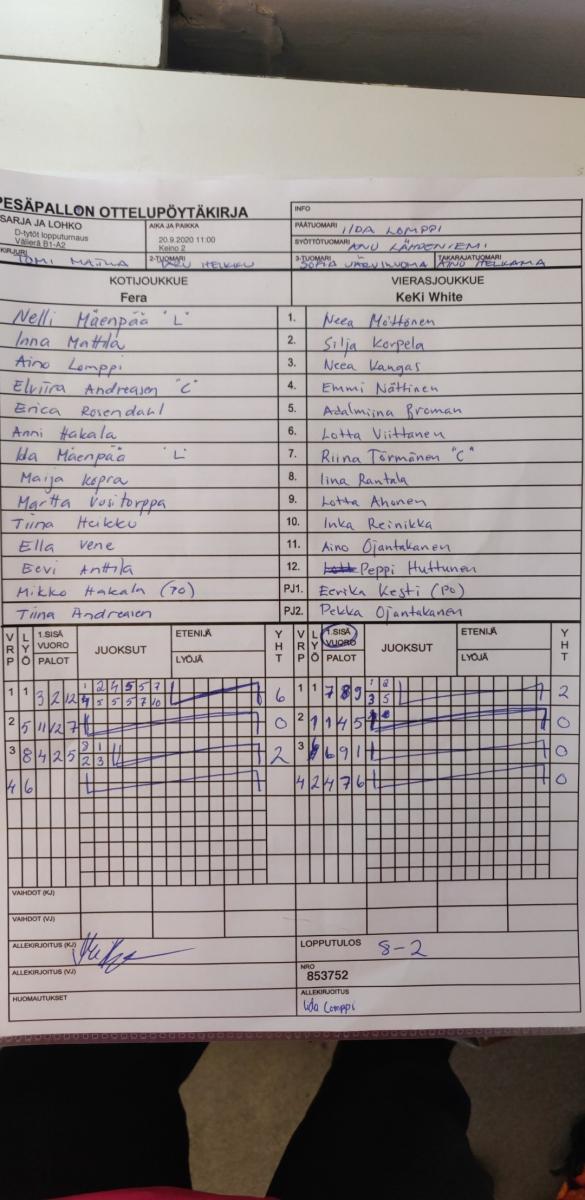 PESÄPALLON OTTELUPÖYTÄKIRJA
INFO
SARJA JA LOHKO
D-tytöt lopputurnaus
Välierä B1-A2
AIKA JA PAIKKA
20.9.2020 11:00
Keino 2
PÄÄTUOMARI IIDA LOMPPI
SYÖTTÖTUOMARI ANU LÄHDENIEMI
KIRJURI TOMI MATTILA
2-TUOMARI HEIKKU
3-TUOMARI SOFIA JÄRVILUOMA
TAKARAJATUOMARI AINO HELKAMA
KOTIJOUKKUE
Fera
VIERASJOUKKUE
KeKi White
Nelli Mäenpää "L" 1. Neea Möttönen
Inna Mattila 2. Silja Korpela
Aino Lomppi 3. Neea Kangas
Elviira Andreasen "C" 4. Emmi Nättinen
Erica Rosendahl 5. Adalmiina Broman
Anni Hakala 6. Lotta Viittanen
Ida Mäenpää "L" 7. Riina Törmänen "C"
Maija Kopra 8. Iina Rantala
Martta Uusitorppa 9. Lotta Ahonen
Tiina Heikku 10. Inka Reinikka
Ella Vene 11. Aino Ojantakanen
Eevi Anttila 12. Peppi Huttunen
Mikko Hakala (PO) PJ1. Eerika Kesti (PO)
Tiina Andreasen PJ2. Pekka Ojantakanen
VRP LYÖ 1.SISÄVUORO PALOT JUOKSUT ETENIJÄ LYÖJÄ YHT VRP LYÖ 1.SISÄVUORO PALOT JUOKSUT ETENIJÄ LYÖJÄ YHT
1 2 4 5 5 7 1 2
1 1 3 2 12 4 5 5 5 7 10 6 1 1 7 8 9 3 5 2
2 5 11 12 7 0 2 1 1 4 5 0
3 8 4 2 5 2 3 1 3 2 3 6 9 1 0
4 6 4 2 4 7 6 0
VAIHDOT (KJ)
VAIHDOT (VJ)
ALLEKIRJOITUS (KJ)
LOPPUTULOS 8-2
ALLEKIRJOITUS (VJ)
NRO
853752
HUOMAUTUKSET
ALLEKIRJOITUS
Iida Lomppi